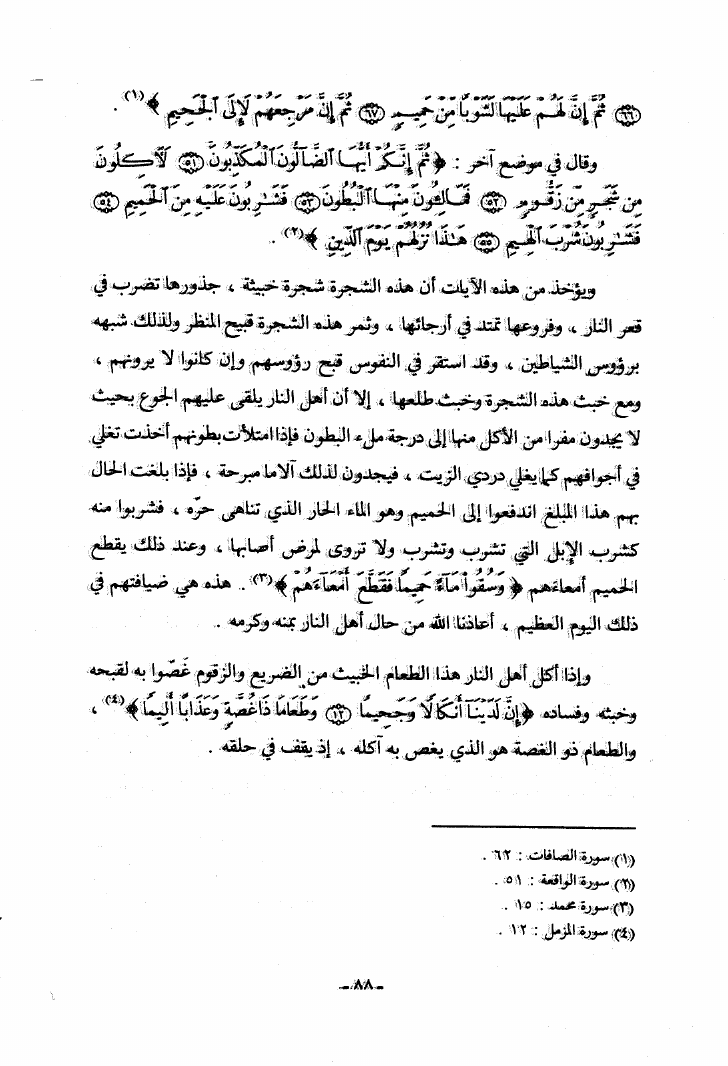 ﴿٦٦﴾ ثُمَّ إِنَّ لَهُمْ عَلَيْهَا لَشَوْبًا مِّنْ حَمِيمٍ ﴿٦٧﴾ ثُمَّ إِنَّ مَرْجِعَهُمْ لَإِلَى الْجَحِيمِ ﴾(١) .
وقال في موضع آخر : ﴿ ثُمَّ إِنَّكُمْ أَيُّهَا الضَّالُّونَ الْمُكَذِّبُونَ ﴿٥١﴾ لَآكِلُونَ
مِن شَجَرٍ مِّن زَقُّومٍ ﴿٥٢﴾ فَمَالِئُونَ مِنْهَا الْبُطُونَ ﴿٥٣﴾ فَشَارِبُونَ عَلَيْهِ مِنَ الْحَمِيمِ ﴿٥٤﴾
فَشَارِبُونَ شُرْبَ الْهِيمِ ﴿٥٥﴾ هَٰذَا نُزُلُهُمْ يَوْمَ الدِّينِ ﴾(٢) .
ويؤخذ من هذه الآيات أن هذه الشجرة شجرة خبيثة ، جذورها تضرب في
قعر النار ، وفروعها تمتد في أرجائها ، وثمر هذه الشجرة قبيح المنظر ولذلك شبهه
برؤوس الشياطين ، وقد استقر في النفوس قبح رؤوسهم وإن كانوا لا يرونهم ،
ومع خبث هذه الشجرة وخبث طلعها ، إلا أن أهل النار يلقى عليهم الجوع بحيث
لا يجدون مفرا من الأكل منها إلى درجة ملء البطون فإذا امتلأت بطونهم أخذت تغلي
في أجوافهم كما يغلي دردي الزيت ، فيجدون لذلك آلاما مبرحة ، فإذا بلغت الحال
بهم هذا المبلغ اندفعوا إلى الحميم وهو الماء الحار الذي تناهى حرّه ، فشربوا منه
كشرب الإبل التي تشرب وتشرب ولا تروى لمرض أصابها ، وعند ذلك يقطع
الحميم أمعاءهم ﴿ وَسُقُوا مَآءً حَمِيمًا فَقَطَّعَ أَمْعَآءَهُمْ ﴾(٣) . هذه هي ضيافتهم في
ذلك اليوم العظيم ، أعاذنا الله من حال أهل النار بمنه وكرمه .
وإذا أكل أهل النار هذا الطعام الخبيث من الضريع والزقوم غَصّوا به لقبحه
وخبثه وفساده ﴿إِنَّ لَدَيْنَآ أَنكَالًا وَجَحِيمًا ﴿١٢﴾ وَطَعَامًا ذَا غُصَّةٍ وَعَذَابًا أَلِيمًا ﴾(٤) ،
والطعام ذو الغصة هو الذي يغص به آكله ، إذ يقف في حلقه .
(١) سورة الصافات : ٦٢ .
(٢) سورة الواقعة : ٥١ .
(٣) سورة محمد : ١٥ .
(٤) سورة المزمل : ١٢ .
-٨٨-